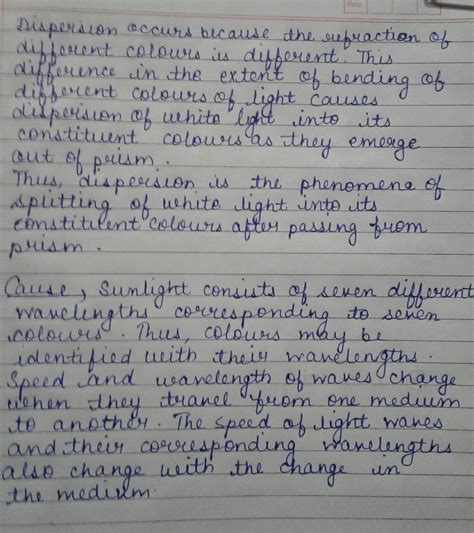 Dispersion occurs because the refraction of
different colours is different. This
difference in the extent of bending of
different colours of light causes
dispersion of white light into its
constituent colours as they emerge
out of prism.
Thus, dispersion is the phenomena of
splitting of white light into its
constituent colours after passing from
prism.
Cause, Sunlight consists of seven different
wavelengths corresponding to seven
colours. Thus, colours may be
identified with their wavelengths.
Speed and wavelength of waves change
when they travel from one medium
to another. The speed of light waves
and their corresponding wavelengths
also change with the change in
the medium.